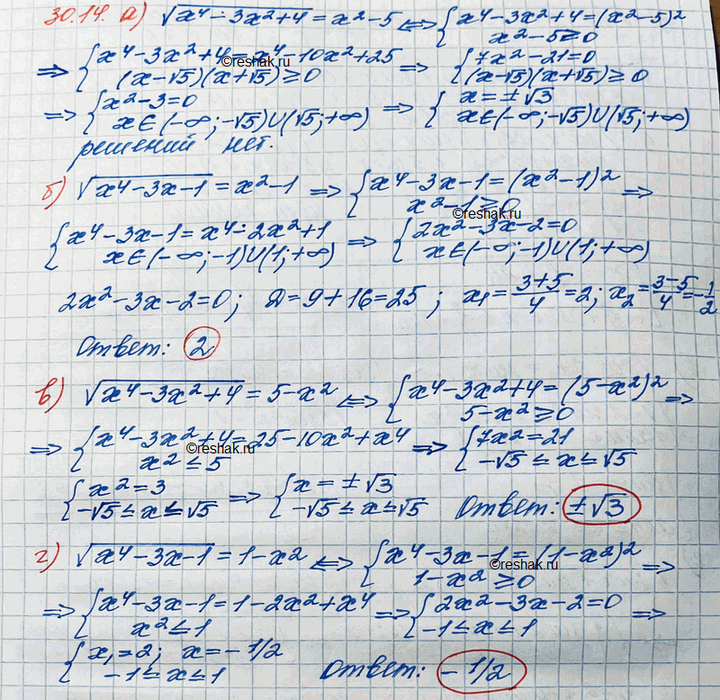 30.14. а) √(x⁴-3x²+4) = x²-5 ⟺ { x⁴-3x²+4=(x²-5)²
x²-5≥0
⇒ { x⁴-3x²+4=x⁴-10x²+25 ⇒ { 7x²-21=0
(x-√5)(x+√5)≥0 (x-√5)(x+√5)≥0
©reshak.ru
⇒ { x²-3=0 ⇒ { x=±√3
x∈(-∞;-√5)∪(√5;+∞) x∈(-∞;-√5)∪(√5;+∞)
решений нет.
б) √(x⁴-3x-1) = x²-1 ⇒ { x⁴-3x-1=(x²-1)² ⇒
x²-1≥0
©reshak.ru
{ x⁴-3x-1=x⁴-2x²+1 ⇒ { 2x²-3x-2=0
x∈(-∞;-1)∪(1;+∞) x∈(-∞;-1)∪(1;+∞)
2x²-3x-2=0; D=9+16=25; x₁=(3+5)/4=2; x₂=(3-5)/4=-1/2
Ответ: 2
в) √(x⁴-3x²+4) = 5-x² ⟺ { x⁴-3x²+4=(5-x²)² ⇒
5-x²≥0
⇒ { x⁴-3x²+4=25-10x²+x⁴ ⇒ { 7x²=21
x²≤5 -√5≤x≤√5
©reshak.ru
{ x²=3 ⇒ { x=±√3
-√5≤x≤√5 -√5≤x≤√5 Ответ: ±√3
г) √(x⁴-3x-1) = 1-x² ⟺ { x⁴-3x-1=(1-x²)² ⇒
1-x²≥0
©reshak.ru
⇒ { x⁴-3x-1=1-2x²+x⁴ ⇒ { 2x²-3x-2=0 ⇒
x²≤1 -1≤x≤1
{ x₁=2; x=-1/2
-1≤x≤1 Ответ: -1/2